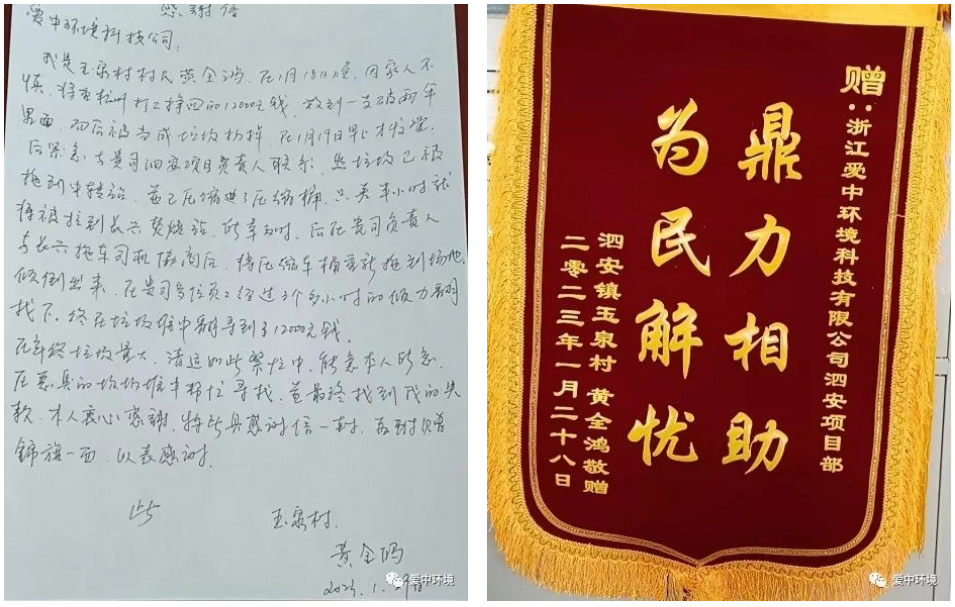 感谢信
爱中环境科技公司:
我是玉泉村村民黄全鸿,在1月18日晚,因家人不
慎,将在杭州打工挣回的12000元钱,放到一支破雨伞
里面,而后被当成垃圾扔掉,在1月19日早上才发觉,
后紧急与贵司泗安项目负责人联系,然垃圾已被
拖到中转站,并已压缩进了压缩桶,只差半小时就
将被拉到长兴焚烧站,后在贵司负责人
与长兴拖车司机协商后,将压缩车桶重新拖到场地
倾倒出来,在贵司多位员工经过3个多小时的倾力翻
找下,终在垃圾堆中翻寻到了12000元钱
在年终垃圾最大,清运如此繁忙中,能急本人所急,
在恶臭的垃圾堆中帮忙寻找,并最终找到我的失
款,本人衷心感謝,特此具感谢信一封,另附赠
锦旗一面,以表感谢,
此
玉泉村,
黄全鸿
爱中环境
赠:浙江爱中环境科技有限公司泗安项目部
鼎力相助
为民解忧
泗安镇玉泉村 黄全鸿敬赠
二零二三年一月二十八日
爱中环境